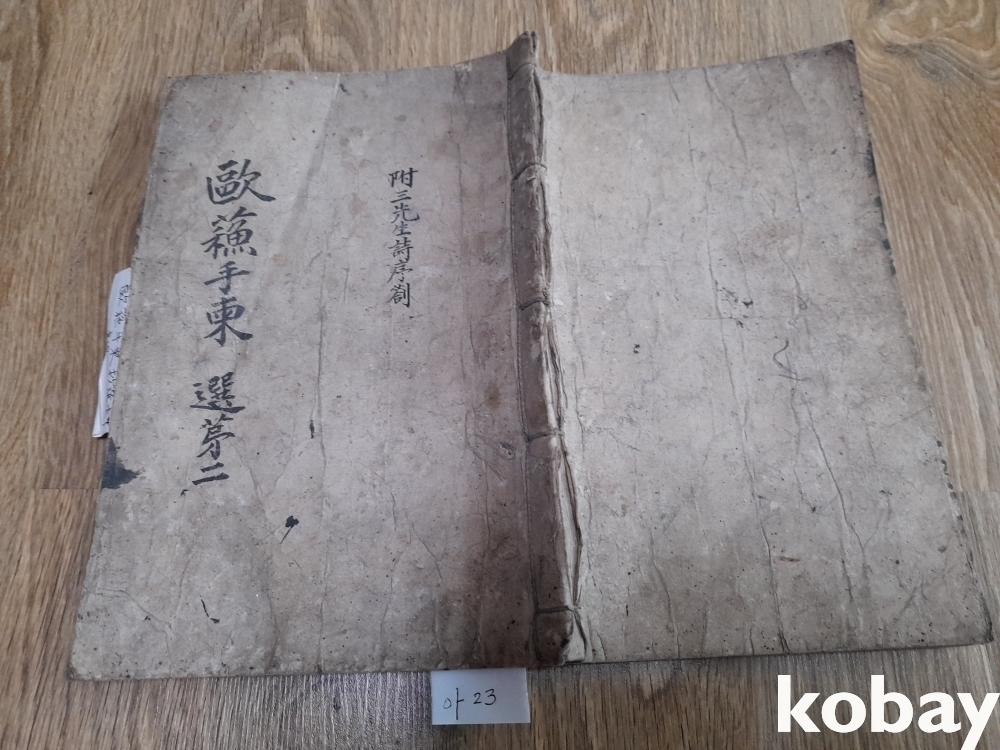 歐蘓手柬 選苐二
附三先生詩序劄
아 23
kobay